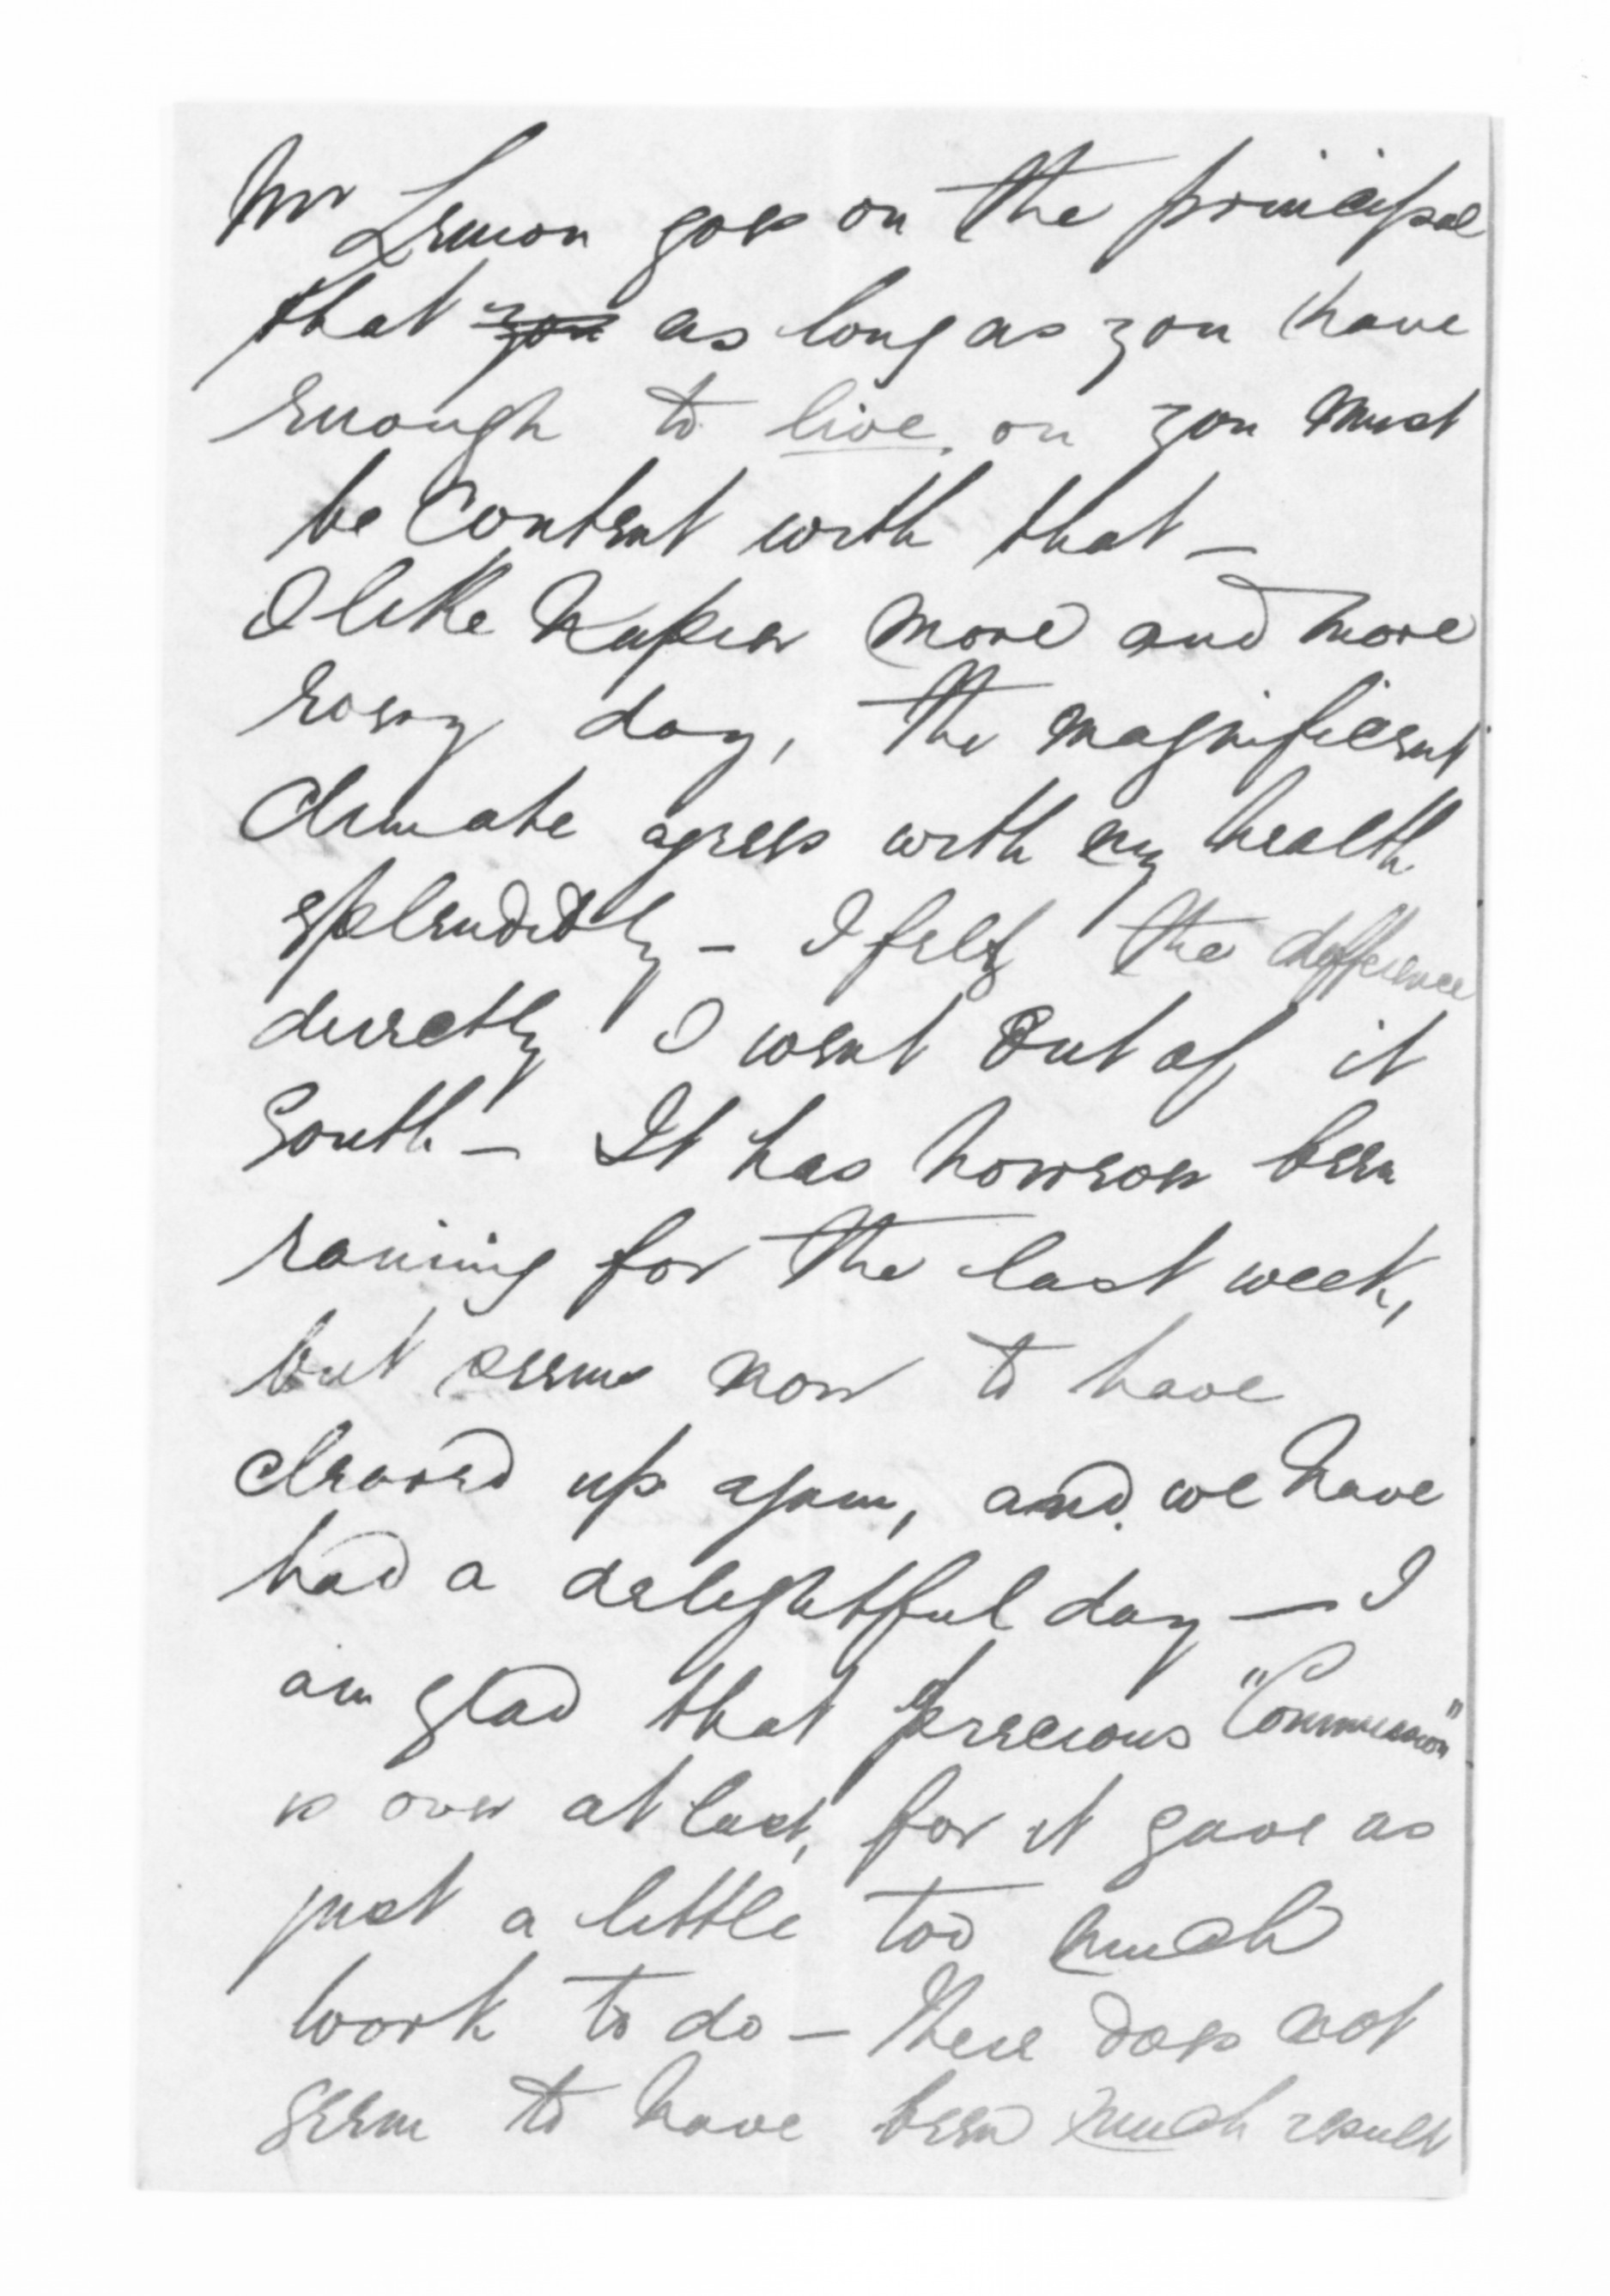 Mr Lemon goes on the principal
that you as long as you have
enough to live on you must
be content with that —
I like Napier more and more
every day, the magnificent
climate agrees with my health
splendidly — I felt the difference
directly I went out of it
South — It has however been
raining for the last week,
but seems now to have
cleared up again, and we have
had a delightful day — I
am glad that precious "Commission"
is over at last, for it gave us
just a little too much
work to do — there does not
seem to have been much result